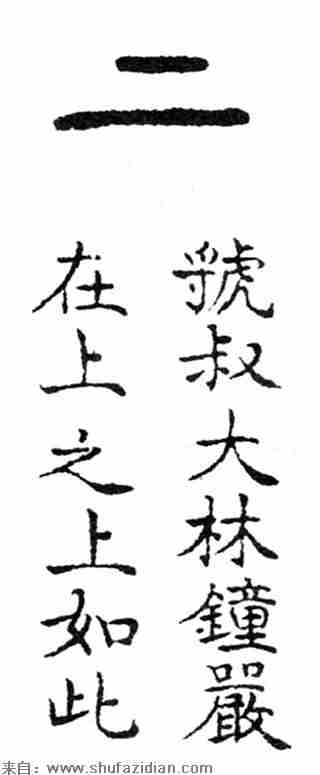 二
虢叔大林鐘嚴
在上之上如此
来自：www.shufazidian.com